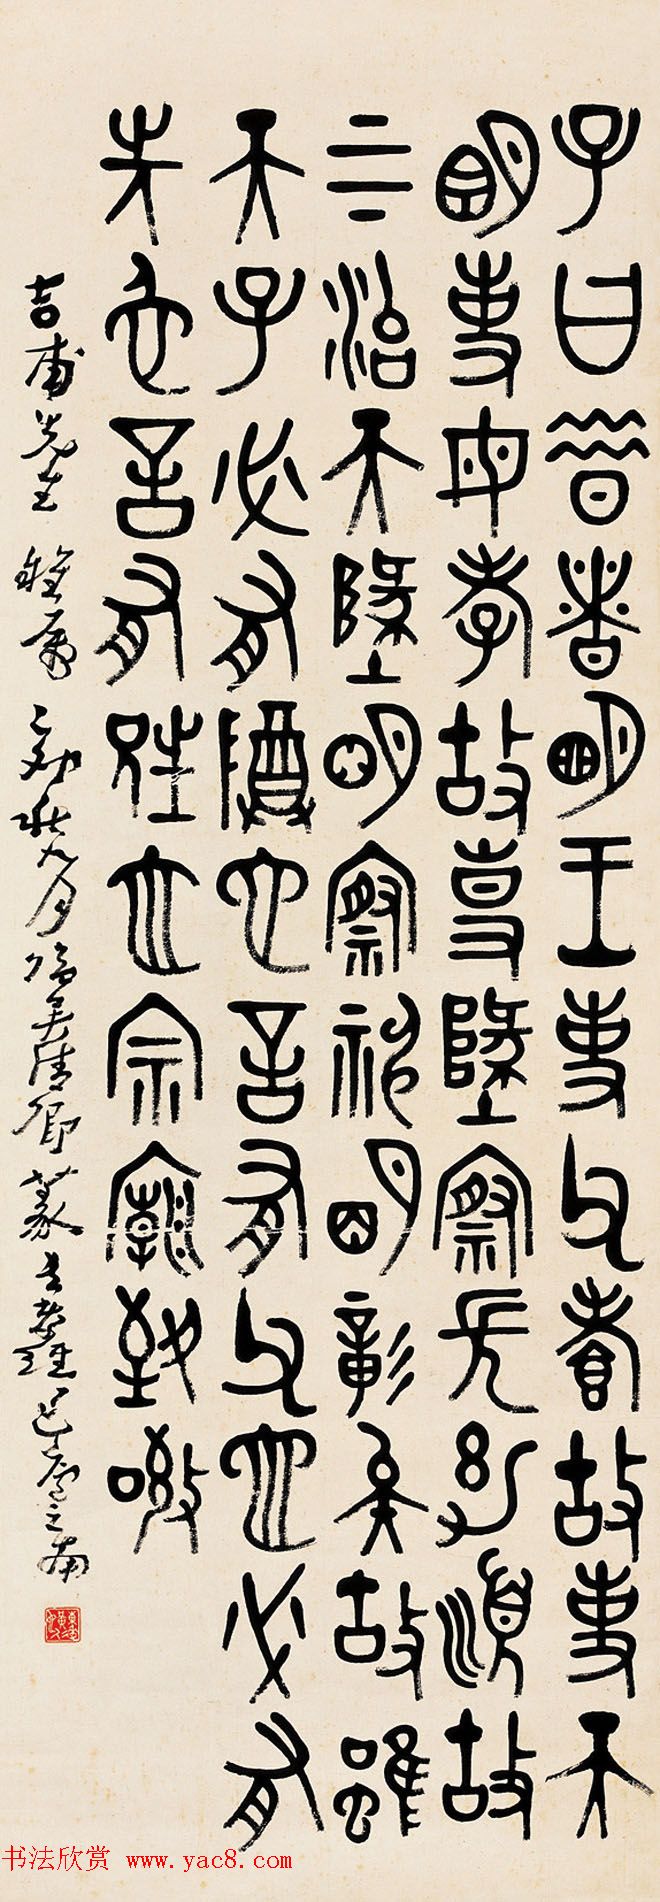 子曰昔者明王事父孝故事天
明事母孝故事地察長幼順故
上下治天地明察神明彰矣故雖
天子必有尊也言有父也必有
先也言有兄也宗廟致敬
吉甫先生 雅屬 秋九月臨吳清卿篆
书法欣赏 www.yac8.com